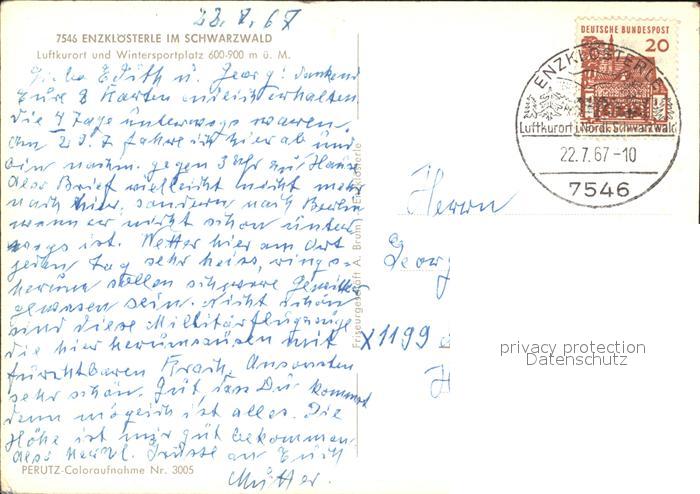 22.7.67
7546 ENZKLÖSTERLE IM SCHWARZWALD
Luftkurort und Wintersportplatz 600-900 m ü. M.
Liebe Edith u. Georg! dankend
Eure 2 Karten endlich erhalten.
die 7 Tage unterwegs waren.
am 27.7 fahre ich hier ab und
bin nachm. gegen 3 Uhr zu Hause
also Brief vielleicht nicht mehr
nach hier, sondern nach Berlin
wenn er nicht schon unter
wegs ist. Wetter hier am Ort
jeden Tag sehr heiss, rings-
herum sollen schwere Gewitter
gewesen sein. Nicht schön
sind diese Militärflugzeuge
die hier herumsausen mit
furchtbaren Krach. Ansonsten
sehr schön. Gut, dass Du kommst
denn möglich ist alles. Die
Höhe ist mir gut bekommen.
also herzl. Grüsse an Euch
Mutter.
PERUTZ-Coloraufnahme Nr. 3005
Friseurgeschäft A. Brum, Enzklösterle
DEUTSCHE BUNDESPOST
20
ENZKLÖSTERLE
Luftkurort i. Nördl. Schwarzwald
22.7.67-10
7546
Herrn
Georg
X1199
H
privacy protection
Datenschutz